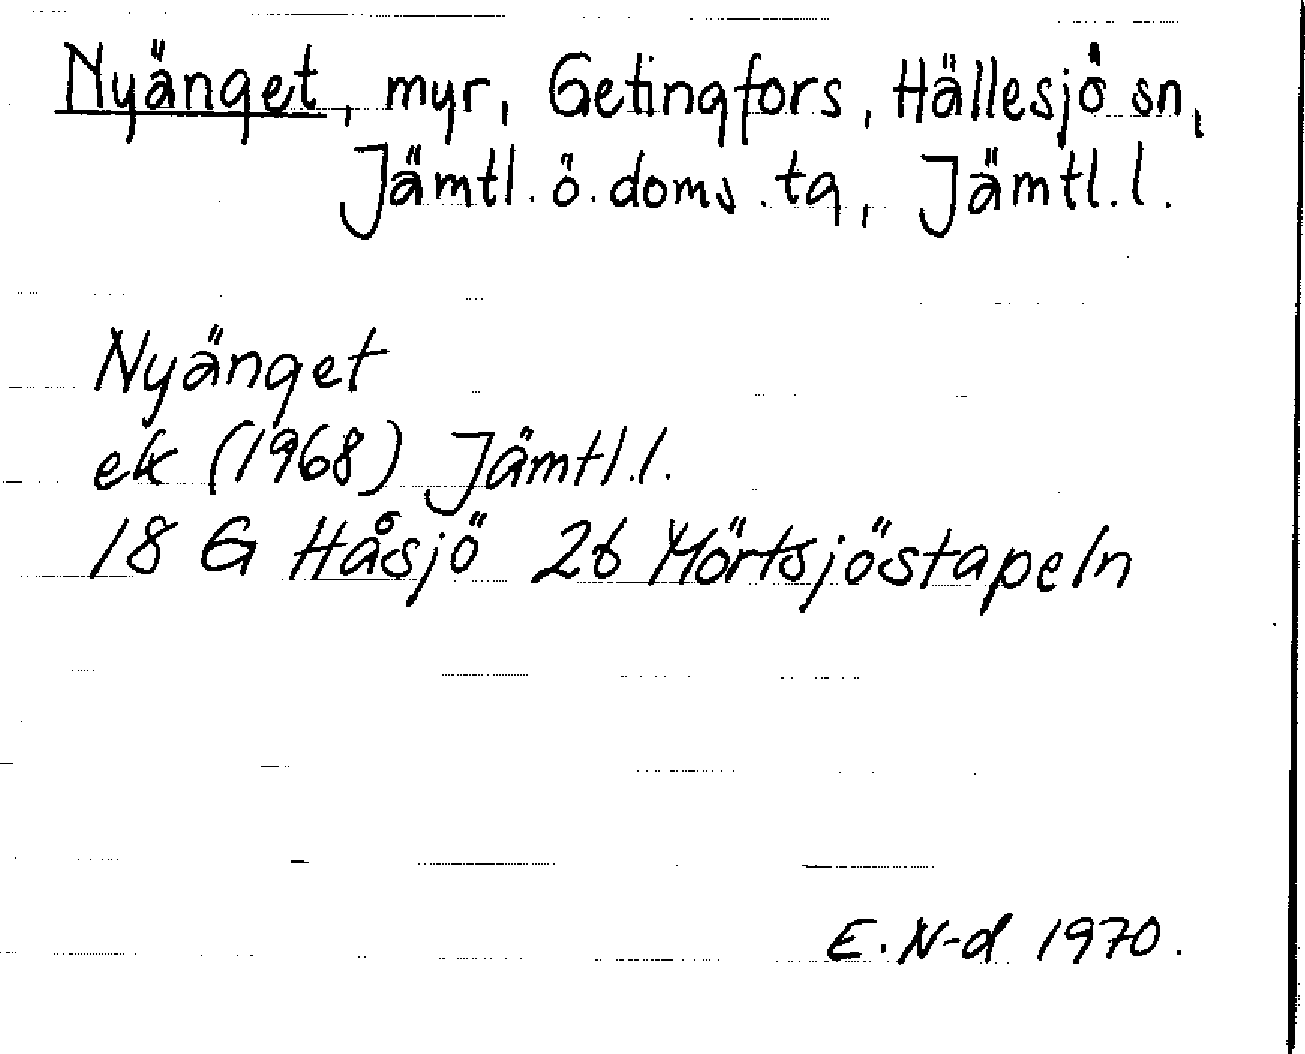 Nyänget, myr, Getingfors, Hällesjö sn,
Jämtl. ö. doms. tg, Jämtl. l.
Nyänget
ek (1968) Jämtl. l.
18 G Håsjö 2b Mörtsjöstapeln
E. N-d 1970.